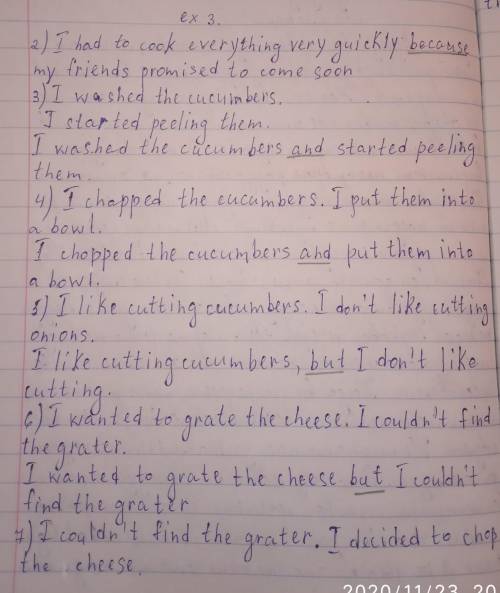 ex 3.
2) I had to cook everything very guickly because
my friends promised to come soon
3) I washed the cucumbers.
I started peeling them.
I washed the cucumbers and started peeling
them.
4) I chopped the cucumbers. I put them into
a bowl.
I chopped the cucumbers and put them into
a bowl.
5) I like cutting cucumbers. I don't like cutting
onions.
I like cutting cucumbers, but I don't like
cutting.
6) I wanted to grate the cheese. I couldn't find
the grater.
I wanted to grate the cheese but I couldn't
find the grater
7) I couldn't find the grater. I decided to chop
the cheese.
2020/11/23 20